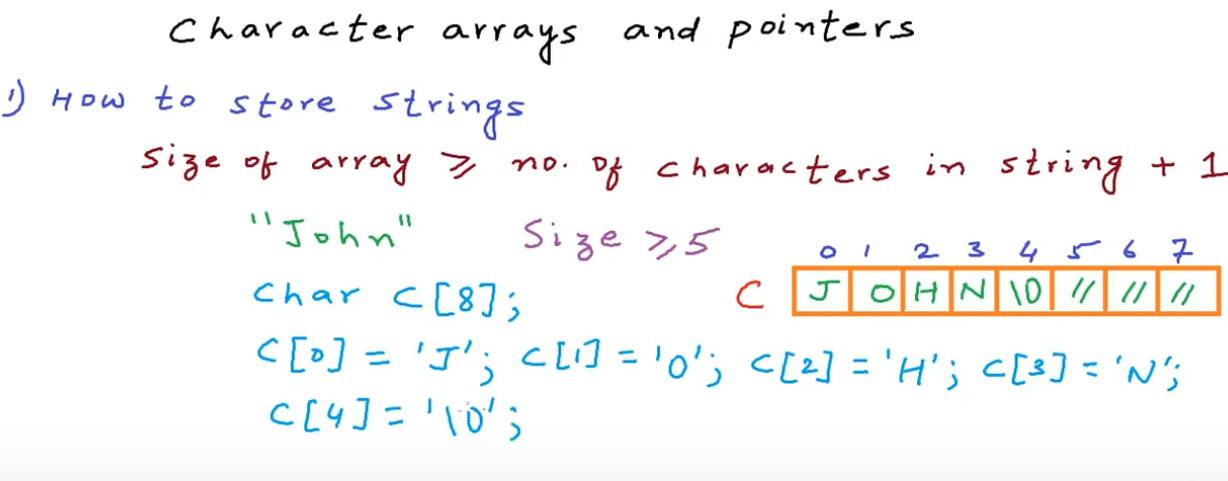 Character arrays and pointers
1) How to store strings
Size of array ≥ no. of characters in string + 1
"John" Size ≥ 5
0 1 2 3 4 5 6 7
char C[8]; C J O H N \0 // // //
C[0] = 'J'; C[1] = 'O'; C[2] = 'H'; C[3] = 'N';
C[4] = '\0';